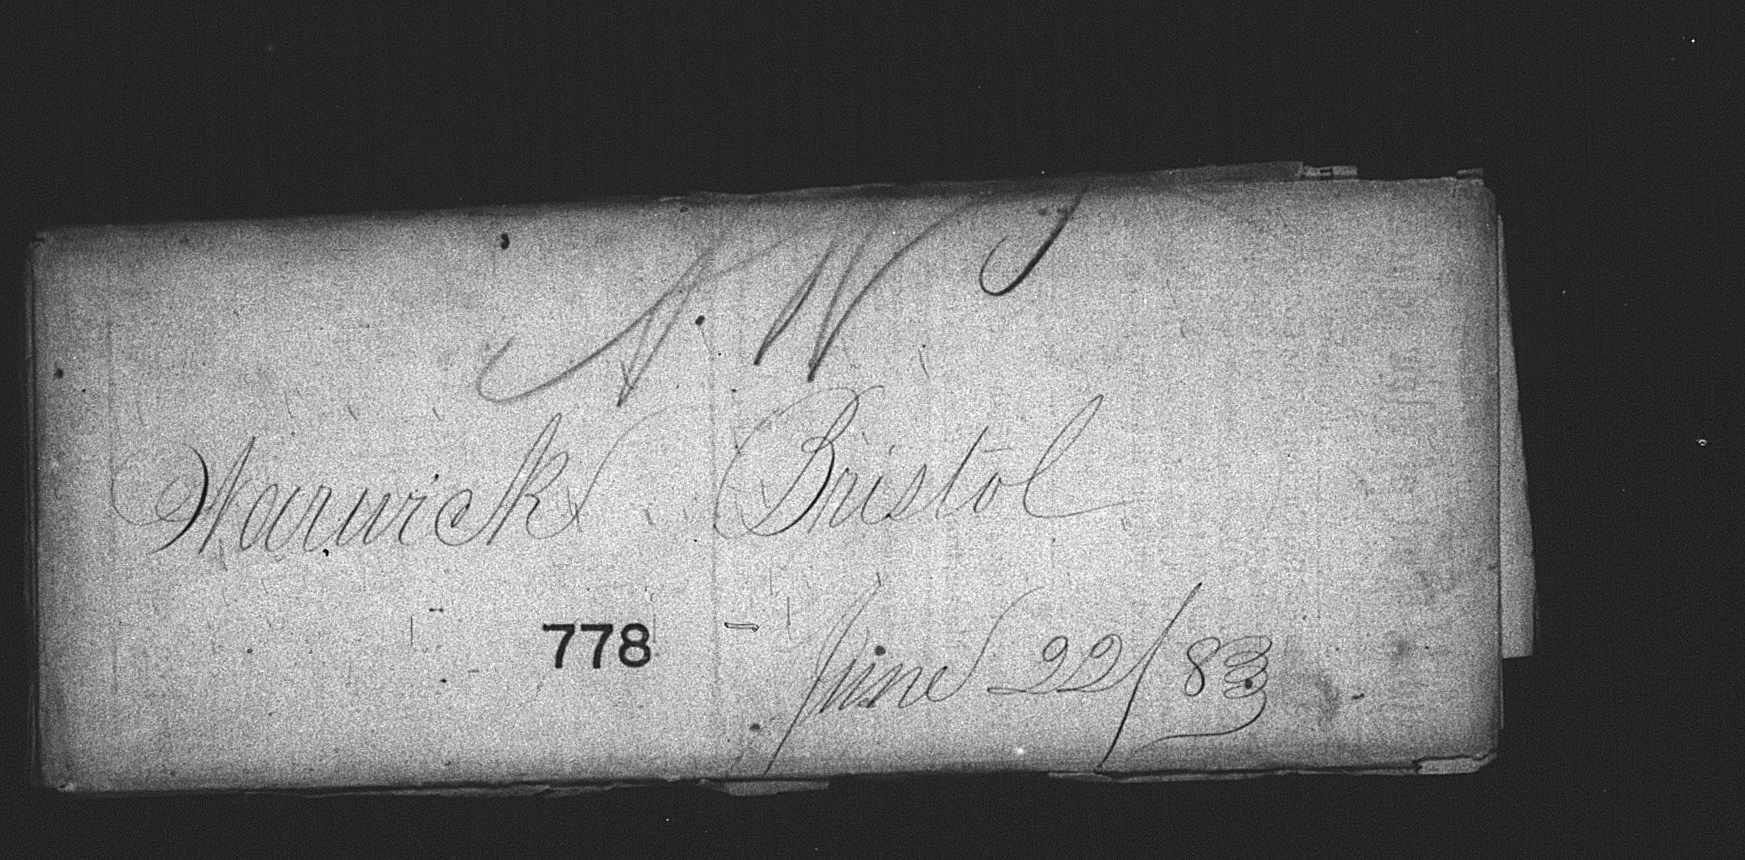 N. W.
Warwick Bristol
778 - June 22/83